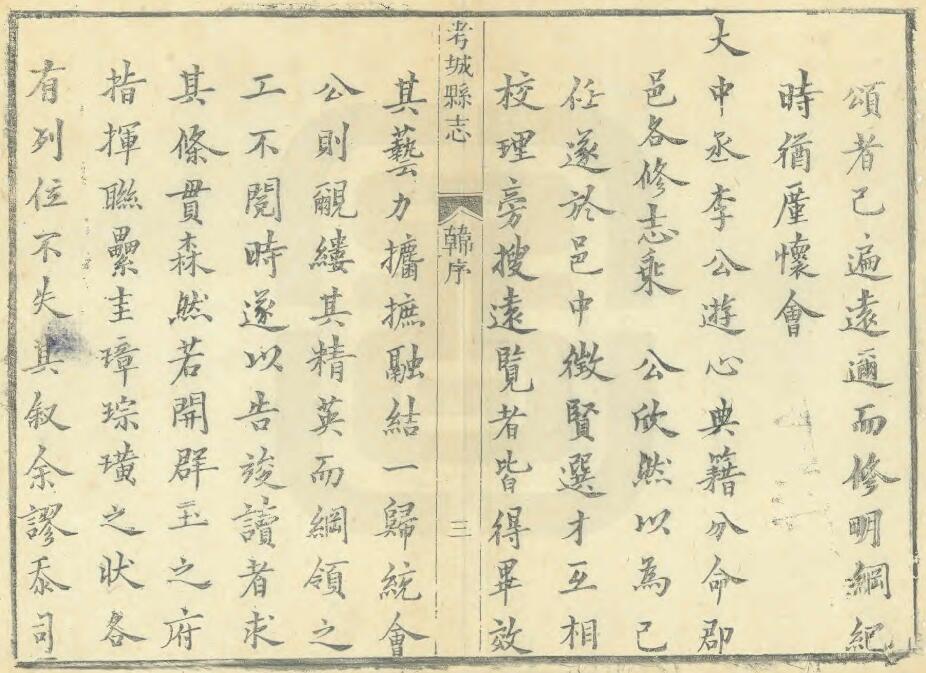 頌者已遍遠邇而修明綱紀
時猶廑懷會
大中丞李公遊心典籍分命郡
邑各修志乘 公欣然以為己
任遂於邑中徵賢選才互相
校理旁搜遠覽者皆得畢效
考城縣志
韓序
三
其藝力攟摭融結一歸統會
公則覼縷其精英而綱領之
工不閱時遂以告竣讀者求
其條貫森然若開群玉之府
指揮聯纍圭璋琮璜之狀各
有列位不失其叙余謬忝司